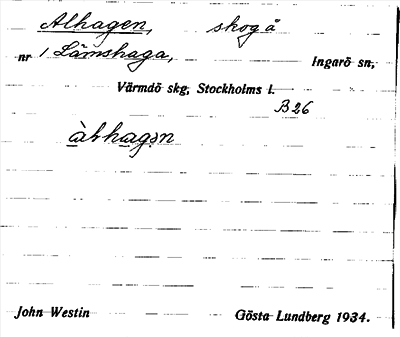 Alhagen, skogå
nr 1 Lämshaga, Ingarö sn,
Värmdö skg, Stockholms l.
B 26
John Westin Gösta Lundberg 1934.